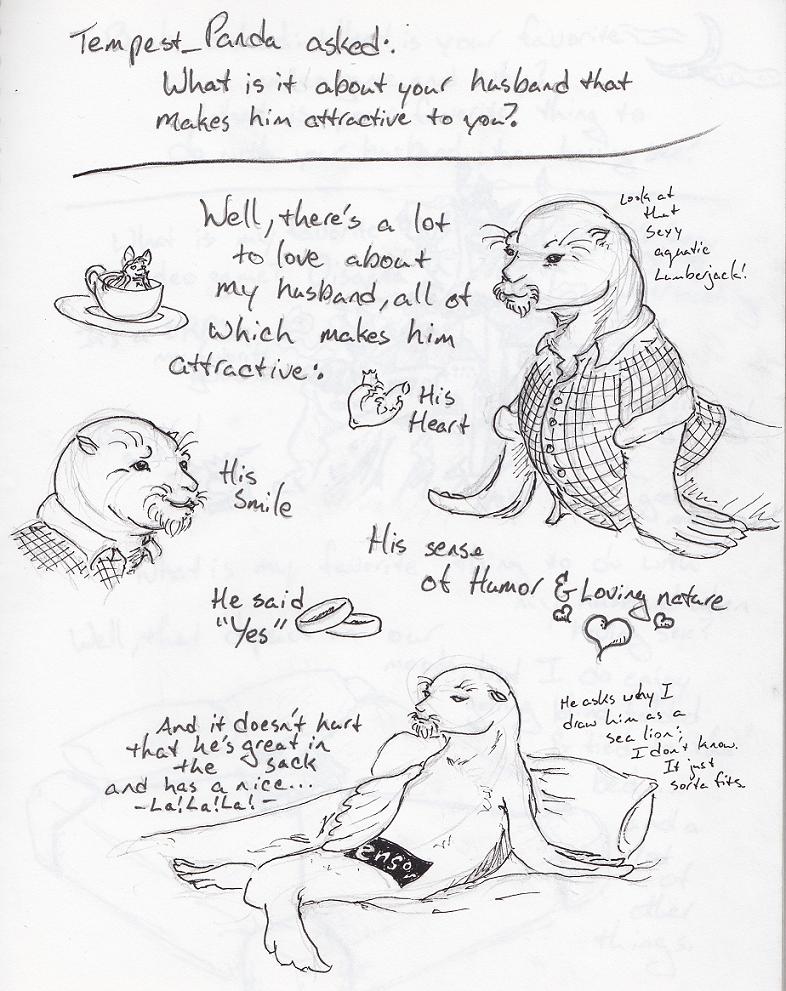 Tempest_Panda asked:
What is it about your husband that
makes him attractive to you?
Well, there's a lot
to love about
my husband, all of
which makes him
attractive:
Look at
that
sexy
aquatic
Lumberjack!
His
Heart
His
Smile
His sense
of Humor & Loving nature
He said
"Yes"
And it doesn't hurt
that he's great in
the sack
and has a nice...
-La!La!La!-
He asks why I
draw him as a
sea lion;
I don't know.
It just
sorta fits.
ensor